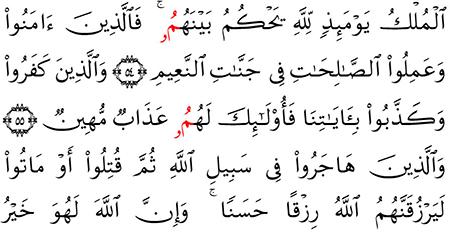 ٱلْمُلْكُ يَوْمَئِذٍ لِّلَّهِ يَحْكُمُ بَيْنَهُمُۥ ۚ فَٱلَّذِينَ ءَامَنُوا۟
وَعَمِلُوا۟ ٱلصَّٰلِحَٰتِ فِى جَنَّٰتِ ٱلنَّعِيمِ ۝٥٤ وَٱلَّذِينَ كَفَرُوا۟
وَكَذَّبُوا۟ بِـَٔايَٰتِنَا فَأُو۟لَٰٓئِكَ لَهُمُۥ عَذَابٌ مُّهِينٌ ۝٥٥
وَٱلَّذِينَ هَاجَرُوا۟ فِى سَبِيلِ ٱللَّهِ ثُمَّ قُتِلُوٓا۟ أَوْ مَاتُوا۟
لَيَرْزُقَنَّهُمُ ٱللَّهُ رِزْقًا حَسَنًا ۚ وَإِنَّ ٱللَّهَ لَهُوَ خَيْرُ